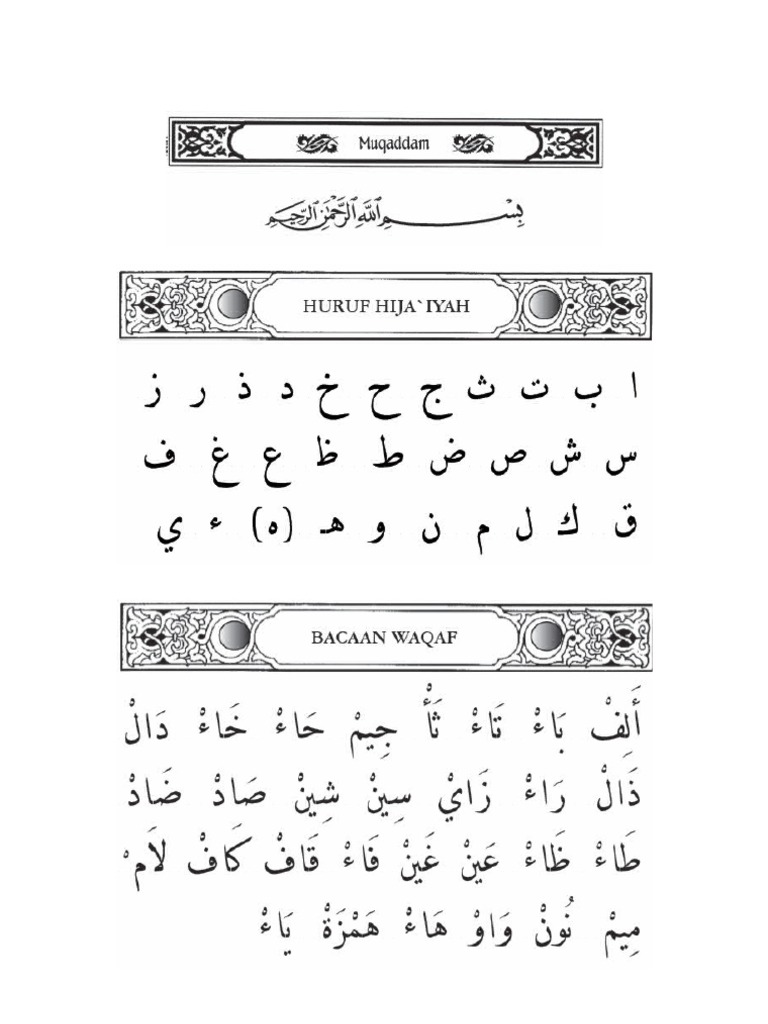 Muqaddam
بِسْمِ اللَّهِ الرَّحْمَٰنِ الرَّحِيمِ
HURUF HIJA`IYAH
ا ب ت ث ج ح خ د ذ ر ز
س ش ص ض ط ظ ع غ ف
ق ك ل م ن و هـ (ه) ء ي
BACAAN WAQAF
أَلِفْ بَاءْ تَاءْ ثَأْ جِيمْ حَاءْ خَاءْ دَالْ
ذَالْ رَاءْ زَايْ سِينْ شِينْ صَادْ ضَادْ
طَاءْ ظَاءْ عَيْنْ غَيْنْ فَاءْ قَافْ كَافْ لاَمْ
مِيمْ نُونْ وَاوْ هَاءْ هَمْزَةْ يَاءْ